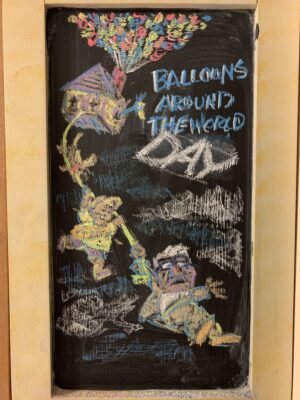 BALLOONS
AROUND
THE WORLD
DAY